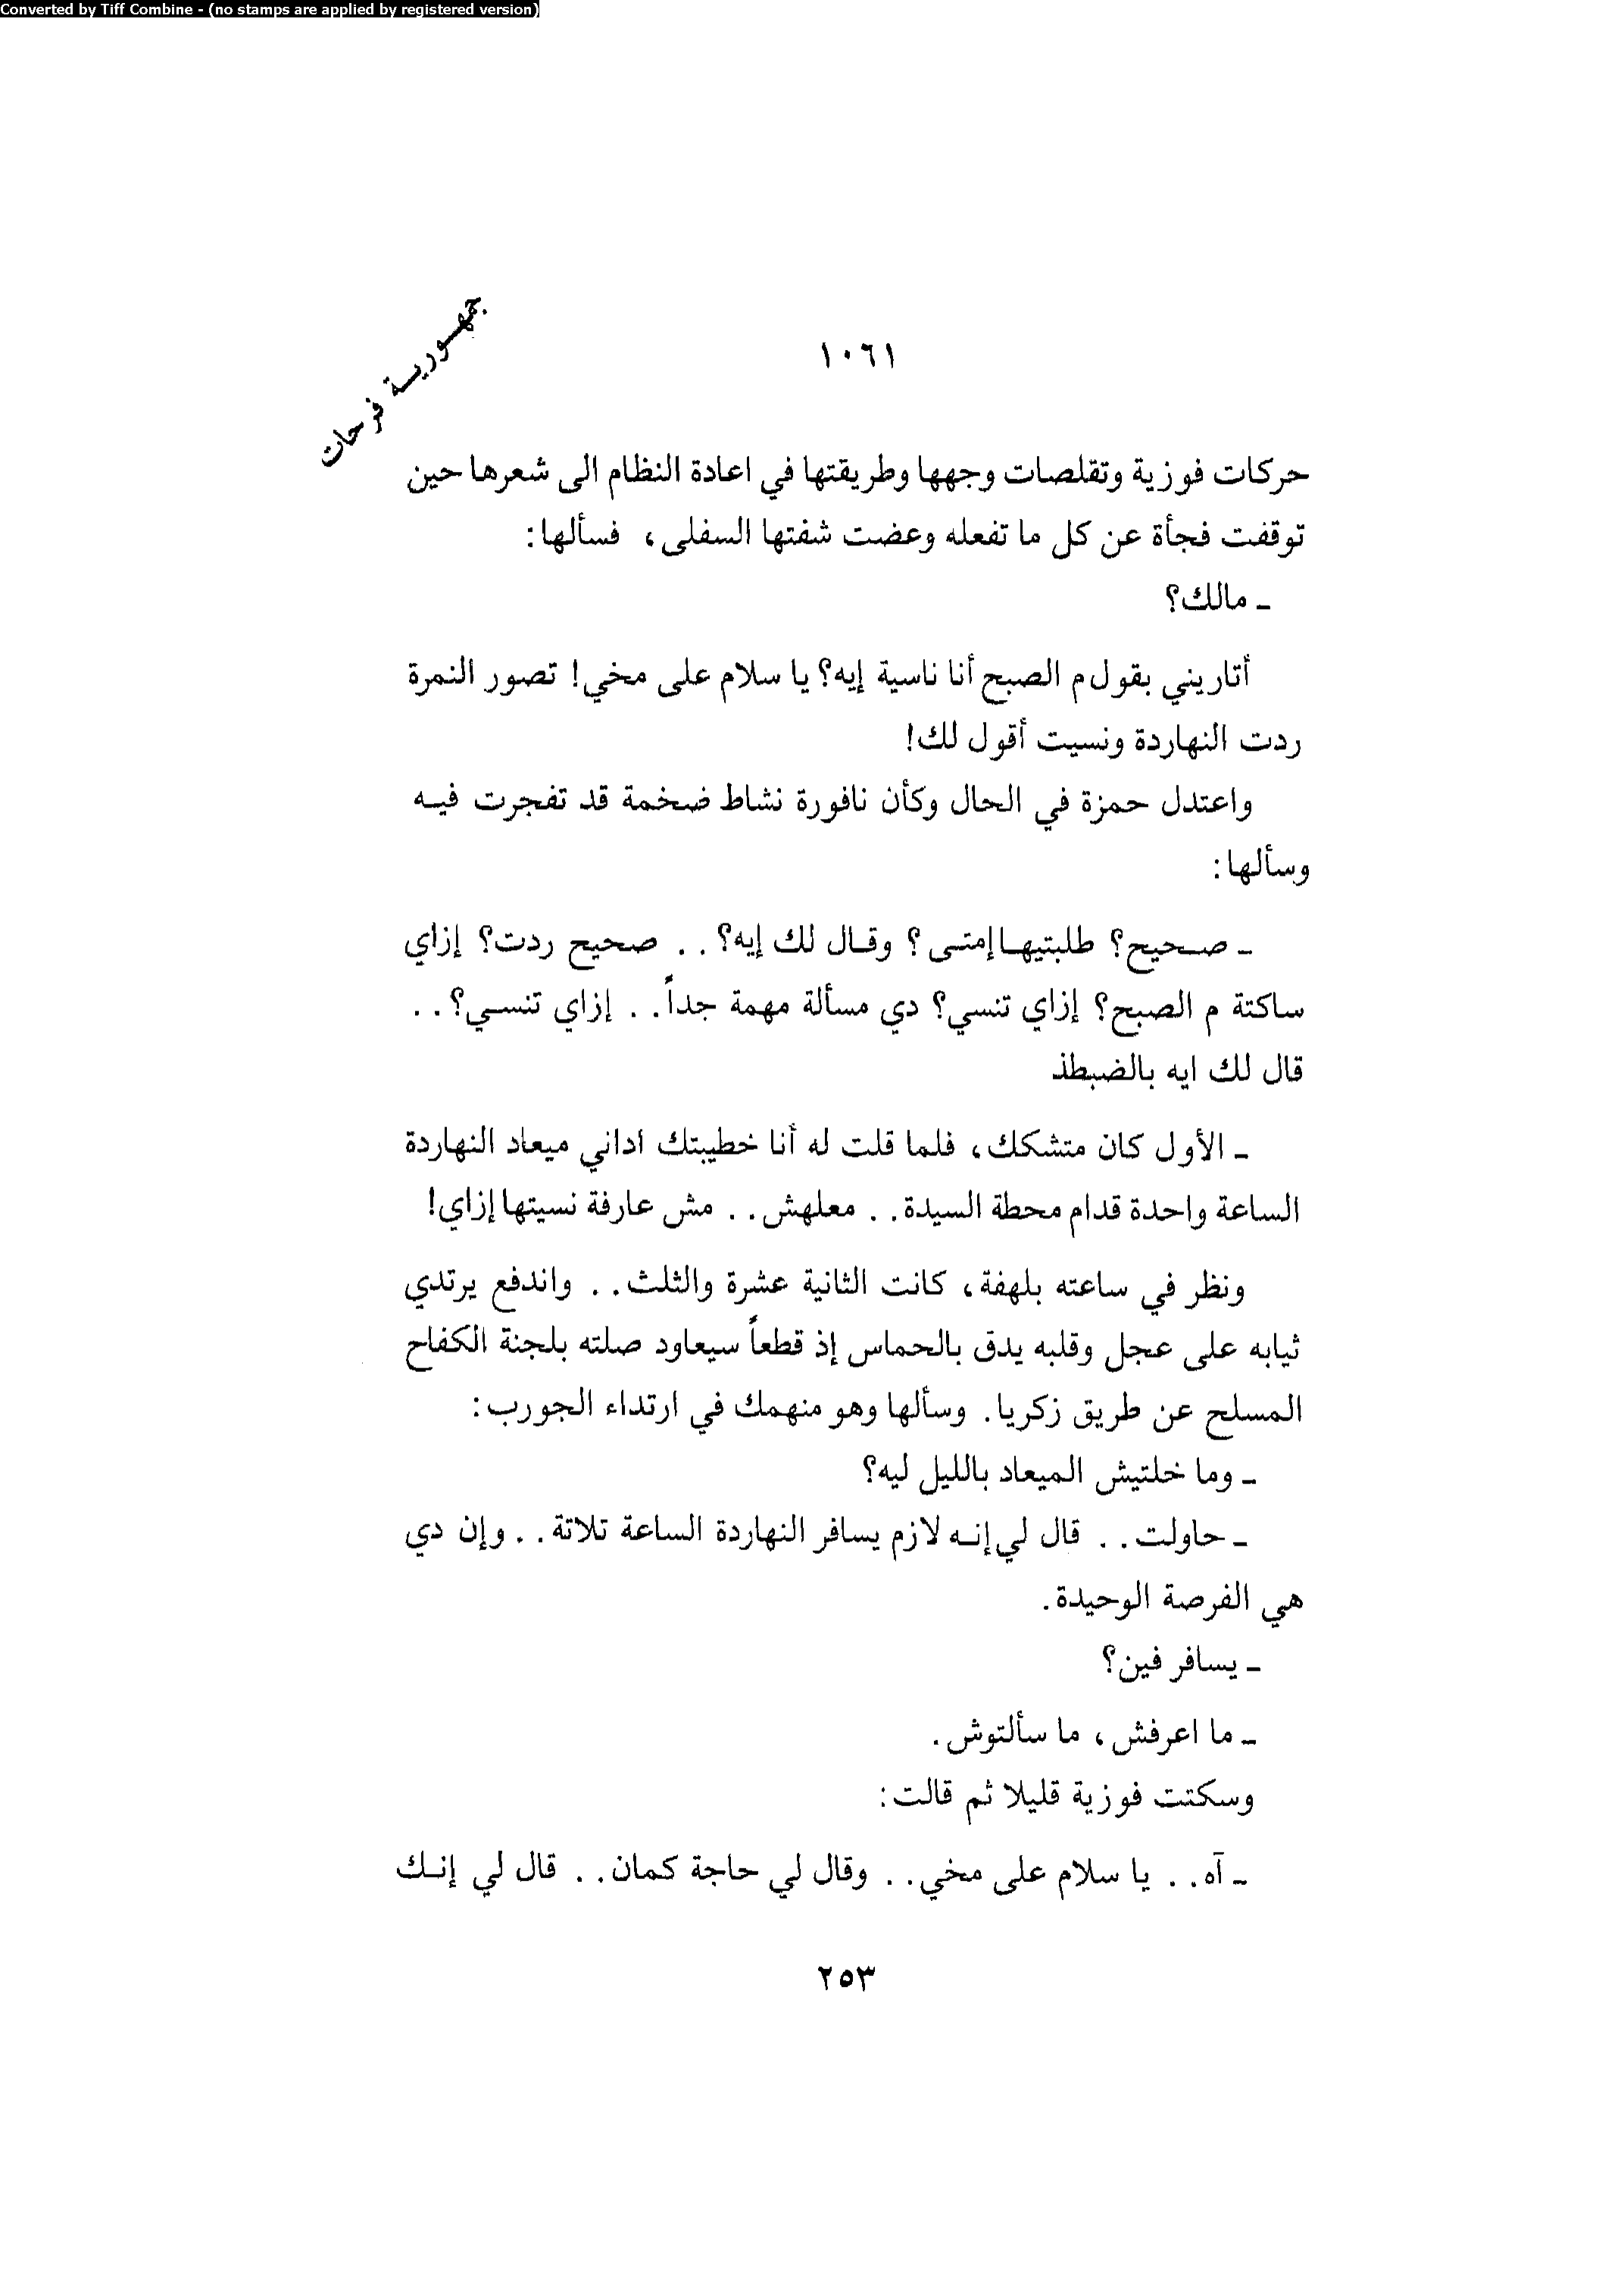 Converted by Tiff Combine - (no stamps are applied by registered version)
جمهورية فرحات
١٠٦١
حركات فوزية وتقلصات وجهها وطريقتها في اعادة النظام الى شعرها حين
توقفت فجأة عن كل ما تفعله وعضت شفتها السفلى، فسألها:
ـ مالك؟
أتاريني بقول م الصبح أنا ناسية إيه؟ يا سلام على مخي! تصور النمرة
ردت النهاردة ونسيت أقول لك!
واعتدل حمزة في الحال وكأن نافورة نشاط ضخمة قد تفجرت فيه
وسألها:
ـ صحيح؟ طلبتيها إمتى؟ وقال لك إيه؟.. صحيح ردت؟ إزاي
ساكتة م الصبح؟ إزاي تنسي؟ دي مسألة مهمة جداً.. إزاي تنسي؟..
قال لك ايه بالضبطذ
ـ الأول كان متشكك، فلما قلت له أنا خطيبتك اداني ميعاد النهاردة
الساعة واحدة قدام محطة السيدة.. معلهش.. مش عارفة نسيتها إزاي!
ونظر في ساعته بلهفة، كانت الثانية عشرة والثلث.. واندفع يرتدي
ثيابه على عجل وقلبه يدق بالحماس إذ قطعاً سيعاود صلته بلجنة الكفاح
المسلح عن طريق زكريا. وسألها وهو منهمك في ارتداء الجورب:
ـ وما خلتيش الميعاد بالليل ليه؟
ـ حاولت.. قال لي إنه لازم يسافر النهاردة الساعة تلاتة.. وإن دي
هي الفرصة الوحيدة.
ـ يسافر فين؟
ـ ما اعرفش، ما سألتوش.
وسكتت فوزية قليلا ثم قالت:
ـ آه.. يا سلام على مخي.. وقال لي حاجة كمان.. قال لي إنك
٢٥٣